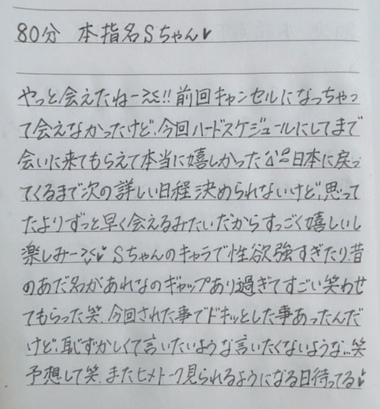 80分 本指名Sちゃん♥
やっと会えたねーミミ!!前回キャンセルになっちゃっ
て会えなかったけど、今回ハードスケジュールにしてまで
会いに来てもらえて本当に嬉しかった 日本に戻っ
てくるまで次の詳しい日程決められないけど、思って
たよりずっと早く会えるみたいだからすっごく嬉しいし
楽しみーミ♥ Sちゃんのキャラで性欲強すぎたり昔
のあだ名があれなのギャップあり過ぎてすごい笑わせ
てもらった笑 今回された事でドキッとした事あったんだ
けど、恥ずかしくて言いたいような言いたくないような…笑
予想して笑 またヒメトーク見られるようになる日待ってる♥